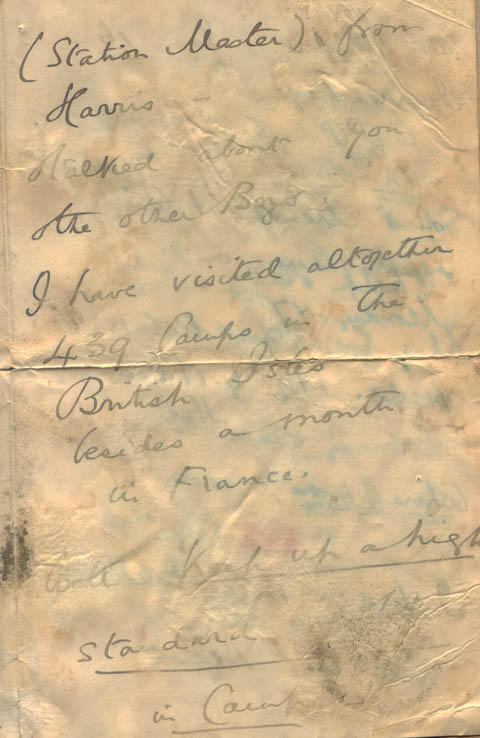 (Station Master), from
Harris -
talked about you
the other Boys.
I have visited altogether
439 Camps in the
British Isles
besides a month
in France.
Keep up a high
standard
in Camp